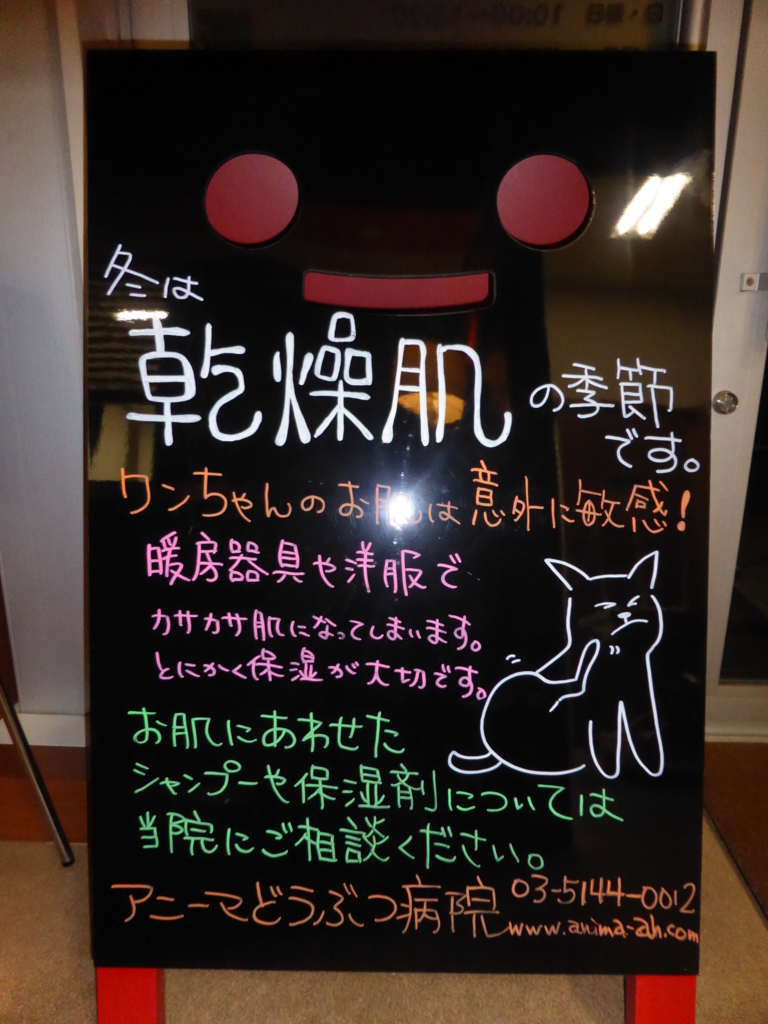 冬は
乾燥肌の季節
です。
ワンちゃんのお肌は意外に敏感!
暖房器具や洋服で
カサカサ肌になってしまいます。
とにかく保湿が大切です。
お肌にあわせた
シャンプーや保湿剤については
当院にご相談ください。
アニーマどうぶつ病院 03-5144-0012
www.anima-ah.com